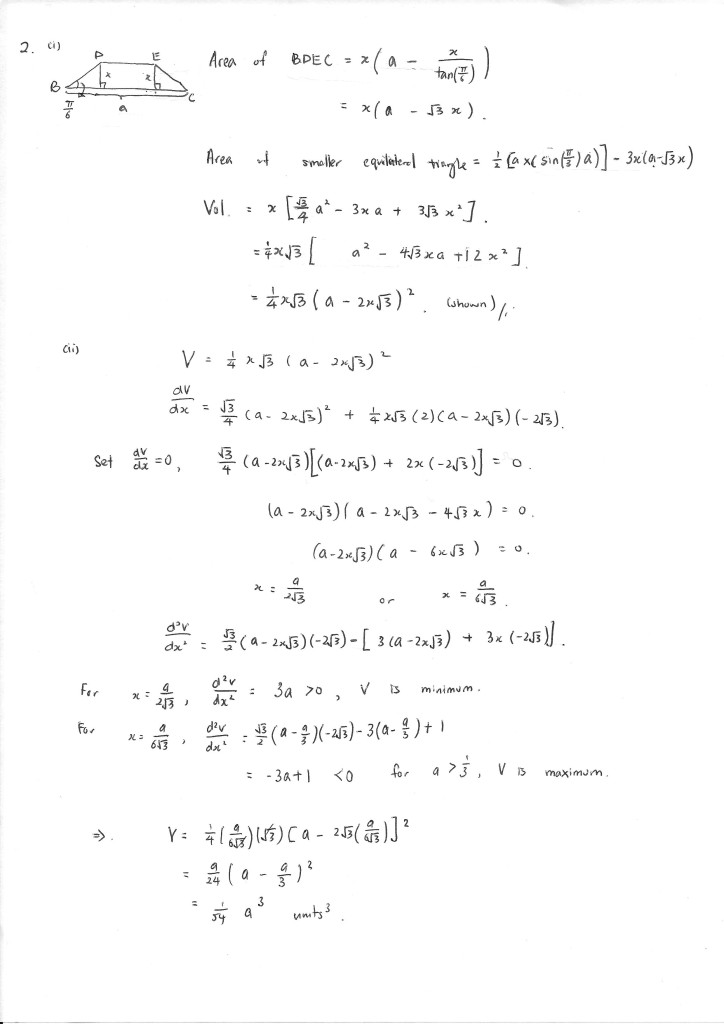 2. (i)
D E
B x x C
π/6 a
Area of BDEC = x(a - x/tan(π/6))
= x(a - √3 x).
Area of smaller equilateral triangle = 1/2 [a x (sin(π/3) a)] - 3x(a-√3x)
Vol. = x [√3/4 a² - 3xa + 3√3 x²].
= 1/4 x√3 [ a² - 4√3 xa + 12x²].
= 1/4 x√3 (a - 2x√3)². (shown)//.
(ii) V = 1/4 x√3 (a - 2x√3)²
dV/dx = √3/4 (a - 2x√3)² + 1/4 x√3 (2)(a - 2x√3)(-2√3).
Set dV/dx = 0, √3/4 (a-2x√3)[(a-2x√3) + 2x(-2√3)] = 0.
(a - 2x√3)(a - 2x√3 - 4√3 x) = 0.
(a-2x√3)(a - 6x√3) = 0.
x = a/2√3 or x = a/6√3.
d²V/dx² = √3/2 (a - 2x√3)(-2√3) - [3(a-2x√3) + 3x(-2√3)].
For x = a/2√3, d²V/dx² = 3a > 0, V is minimum.
For x = a/6√3, d²V/dx² = √3/2 (a - a/3)(-2√3) - 3(a - a/3) + 1
= -3a+1 < 0 for a > 1/3, V is maximum.
⇒. V = 1/4 (a/6√3)(√3)[a - 2√3(a/6√3)]²
= a/24 (a - a/3)²
= 1/54 a³ units³.